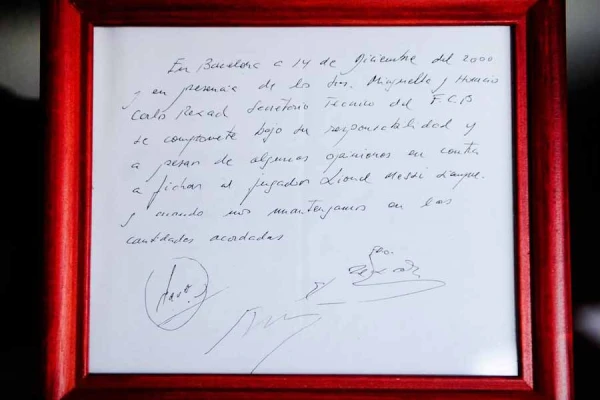 En Barcelona a 14 de Diciembre del 2000
y en presencia de los Srs. Minguella y Horacio
Carlo Rexad Secretario Tecnico del F.C.B
se compromete bajo su responsabilidad y
a pesar de algunas opiniones en contra
a fichar al jugador Lionel Messi siempre
y cuando nos mantengamos en las
cantidades acordadas